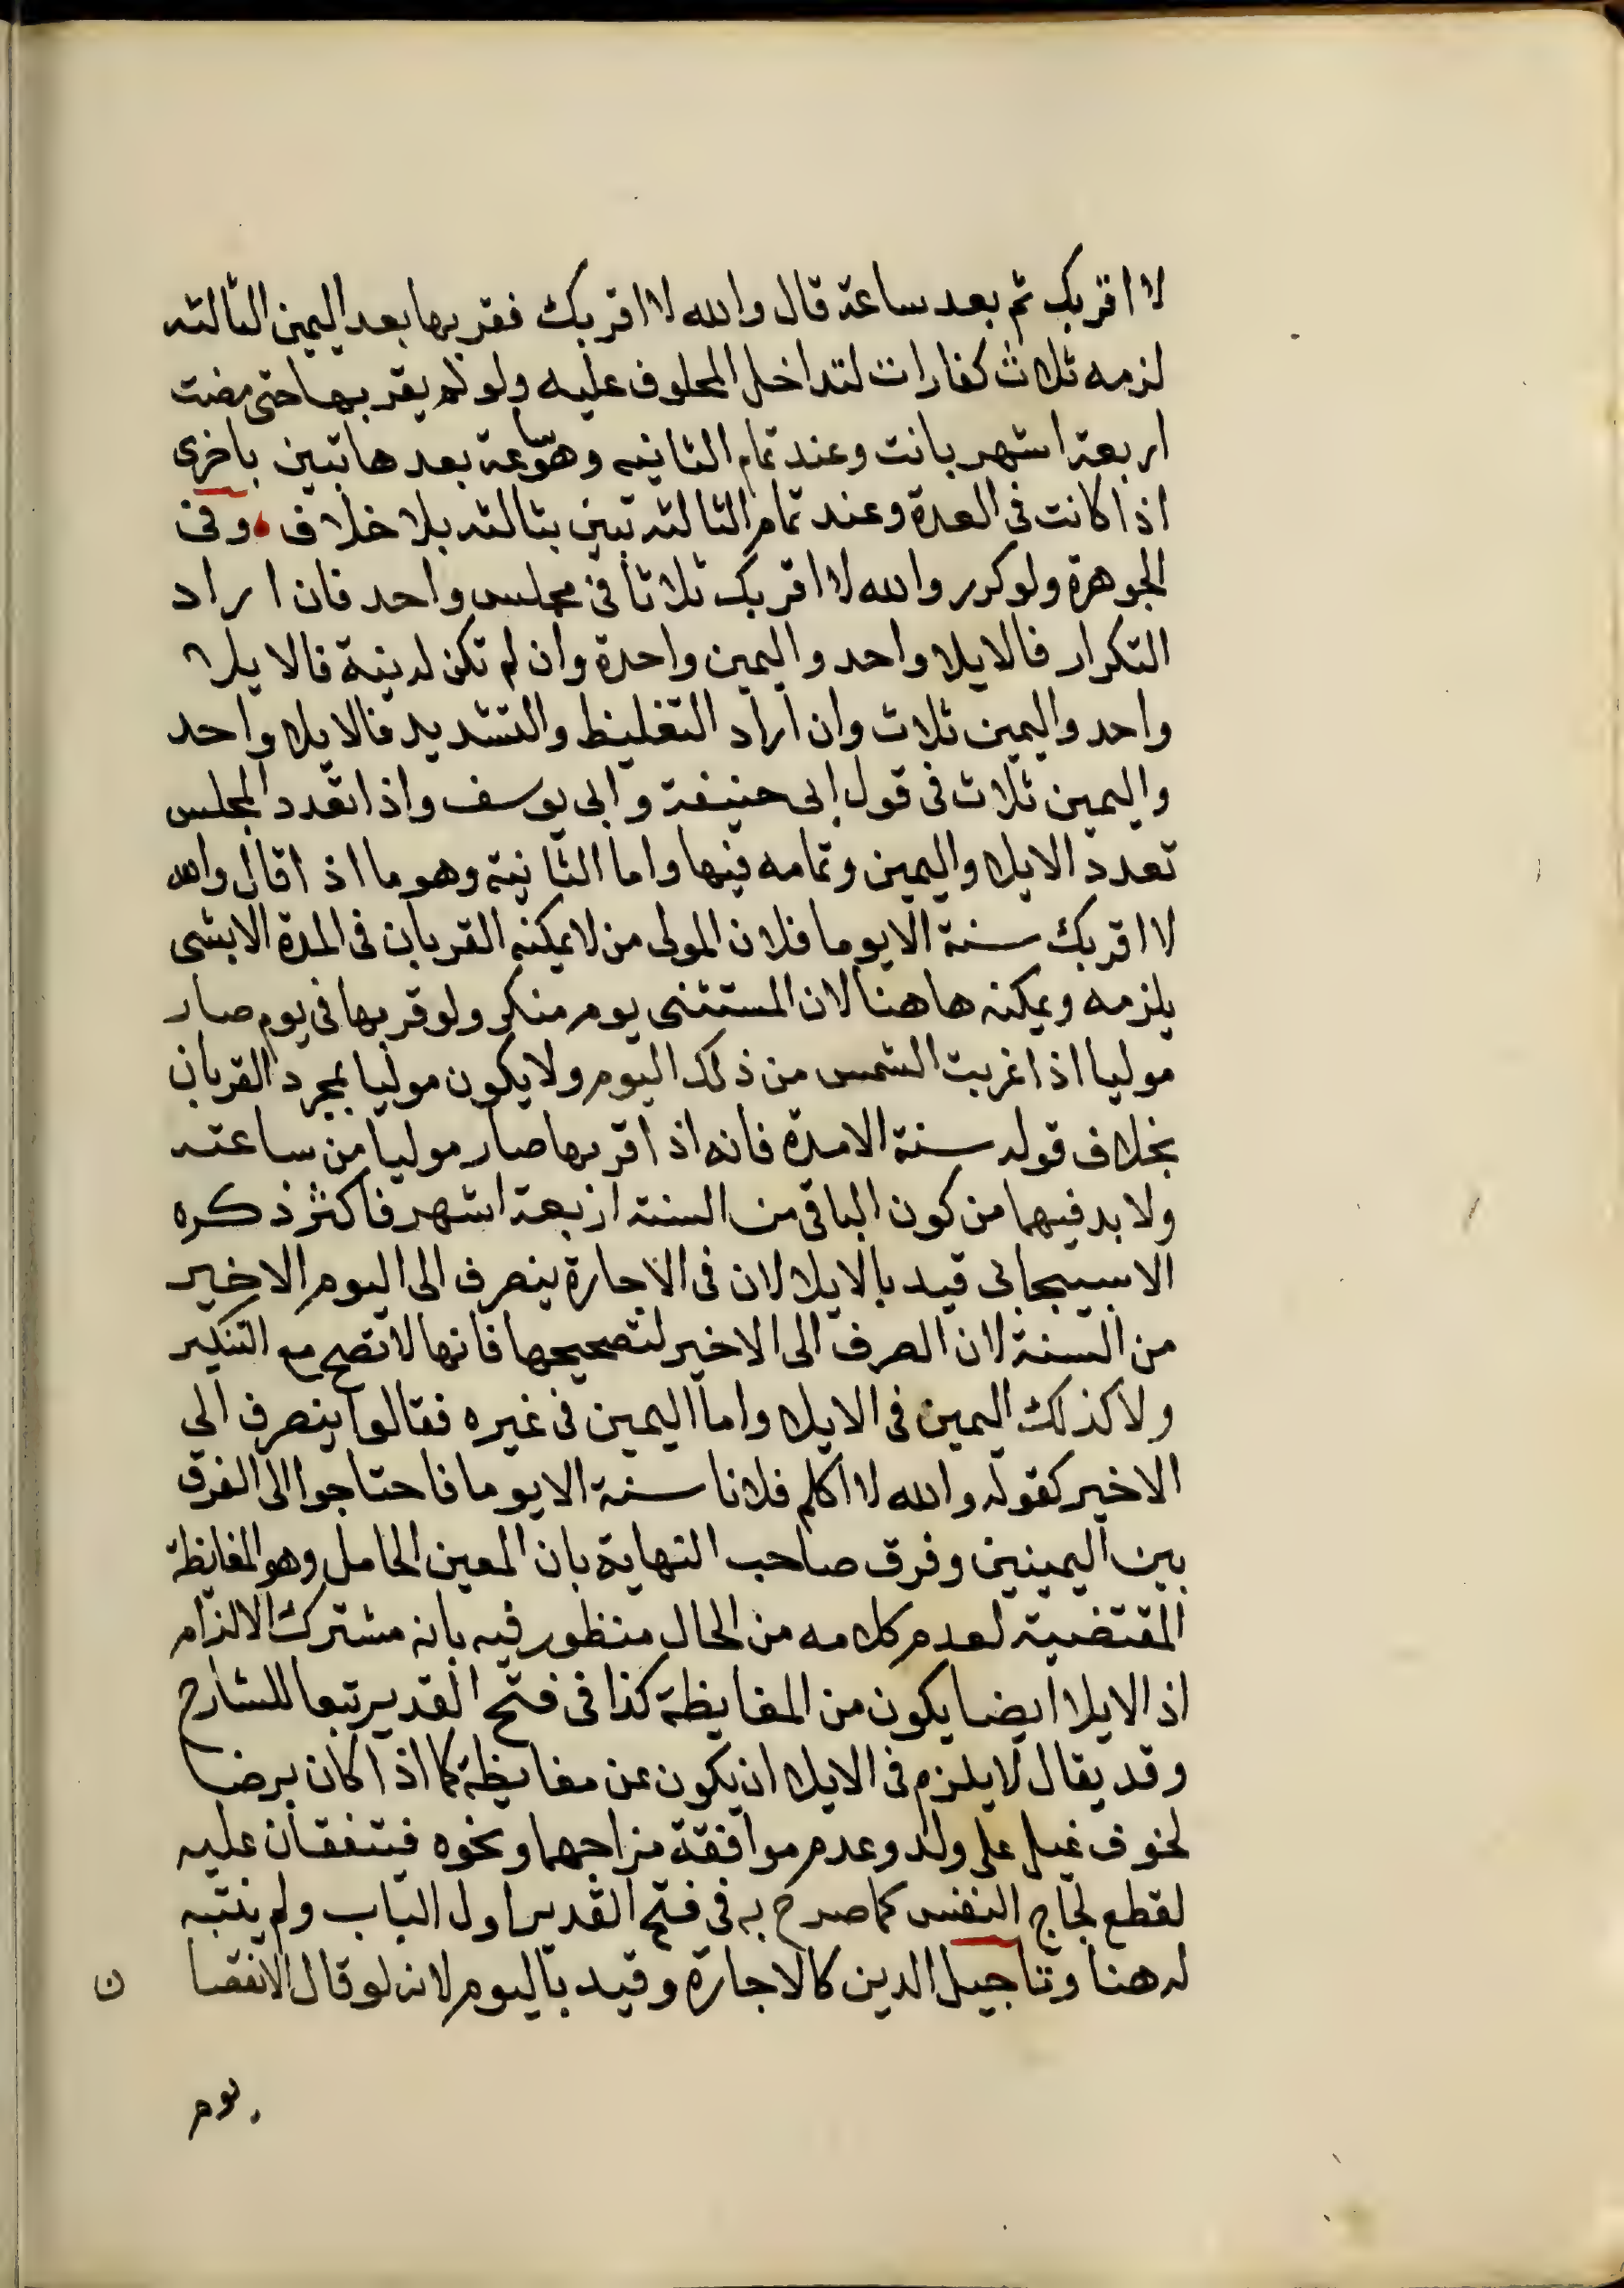 لا اقربك ثم بعد ساعة قال والله لا اقربك فقربها بعد اليمين الثالثه
لزمه ثلاث كفارات لتداخل المحلوف عليه ولو لم يقربها حتى مضت
اربعة اشهر بانت وعند تمام الثانيه وهو ساعة بعدها تبين باخرى
اذا كانت في العدة وعند تمام الثالثه تبين بثالثه بلا خلاف وفى
الجوهرة ولو كرر والله لا اقربك ثلاثا في مجلس واحد فان اراد
التكرار فالايلا واحد واليمين واحدة وان لم تكن له نية فالايلا
واحد واليمين ثلاث وان اراد التغليظ والتشديد فالايلا واحد
واليمين ثلاث في قول ابى حنيفة وابى يوسف واذا تعدد المجلس
تعدد الايلا واليمين وتمامه فيها واما الثانية وهو ما اذا قال والله
لا اقربك سنة الا يوما فلان المولى من لا يمكنه القربان في المدة الا بشى
يلزمه ويمكنه هاهنا لان المستثنى يوم منكر ولو قربها في يوم صار
موليا اذا غربت الشمس من ذلك اليوم ولا يكون موليا بمجرد القربان
بخلاف قوله سنة الا مدة فانه اذا قربها صار موليا من ساعته
ولا بد فيهما من كون الباقي من السنة اربعة اشهر فاكثر ذكره
الاسبيجابى قيد بالايلا لان في الاجارة ينصرف الى اليوم الاخير
من السنة لان الصرف الى الاخير لتصحيحها فانها لا تصح مع التنكير
ولا كذلك اليمين في الايلا واما اليمين في غيره فقالوا ينصرف الى
الاخير كقوله والله لا اكلم فلانا سنة الا يوما فاحتاجوا الى الفرق
بين اليمينين وفرق صاحب النهاية بان المعين الحامل وهو المغايظة
المقتضية لعدم كلامه من الحال منظور فيه بانه مشترك الالزام
اذ الايلا ايضا يكون من المغايظة كذا في فتح القدير تبعا للشارح
وقد يقال لا يلزم في الايلا ان يكون عن مغايظة كما اذا كان برضا
لخوف غيل على ولد وعدم موافقة مزاجهما ونحوه فيتفقان عليه
لقطع لجاج النفس كما صرح به في فتح القدير اول الباب ولم ينتبه
له هنا وتاجيل الدين كالاجارة وقيد باليوم لانه لو قال الا نقصا ن
يوم